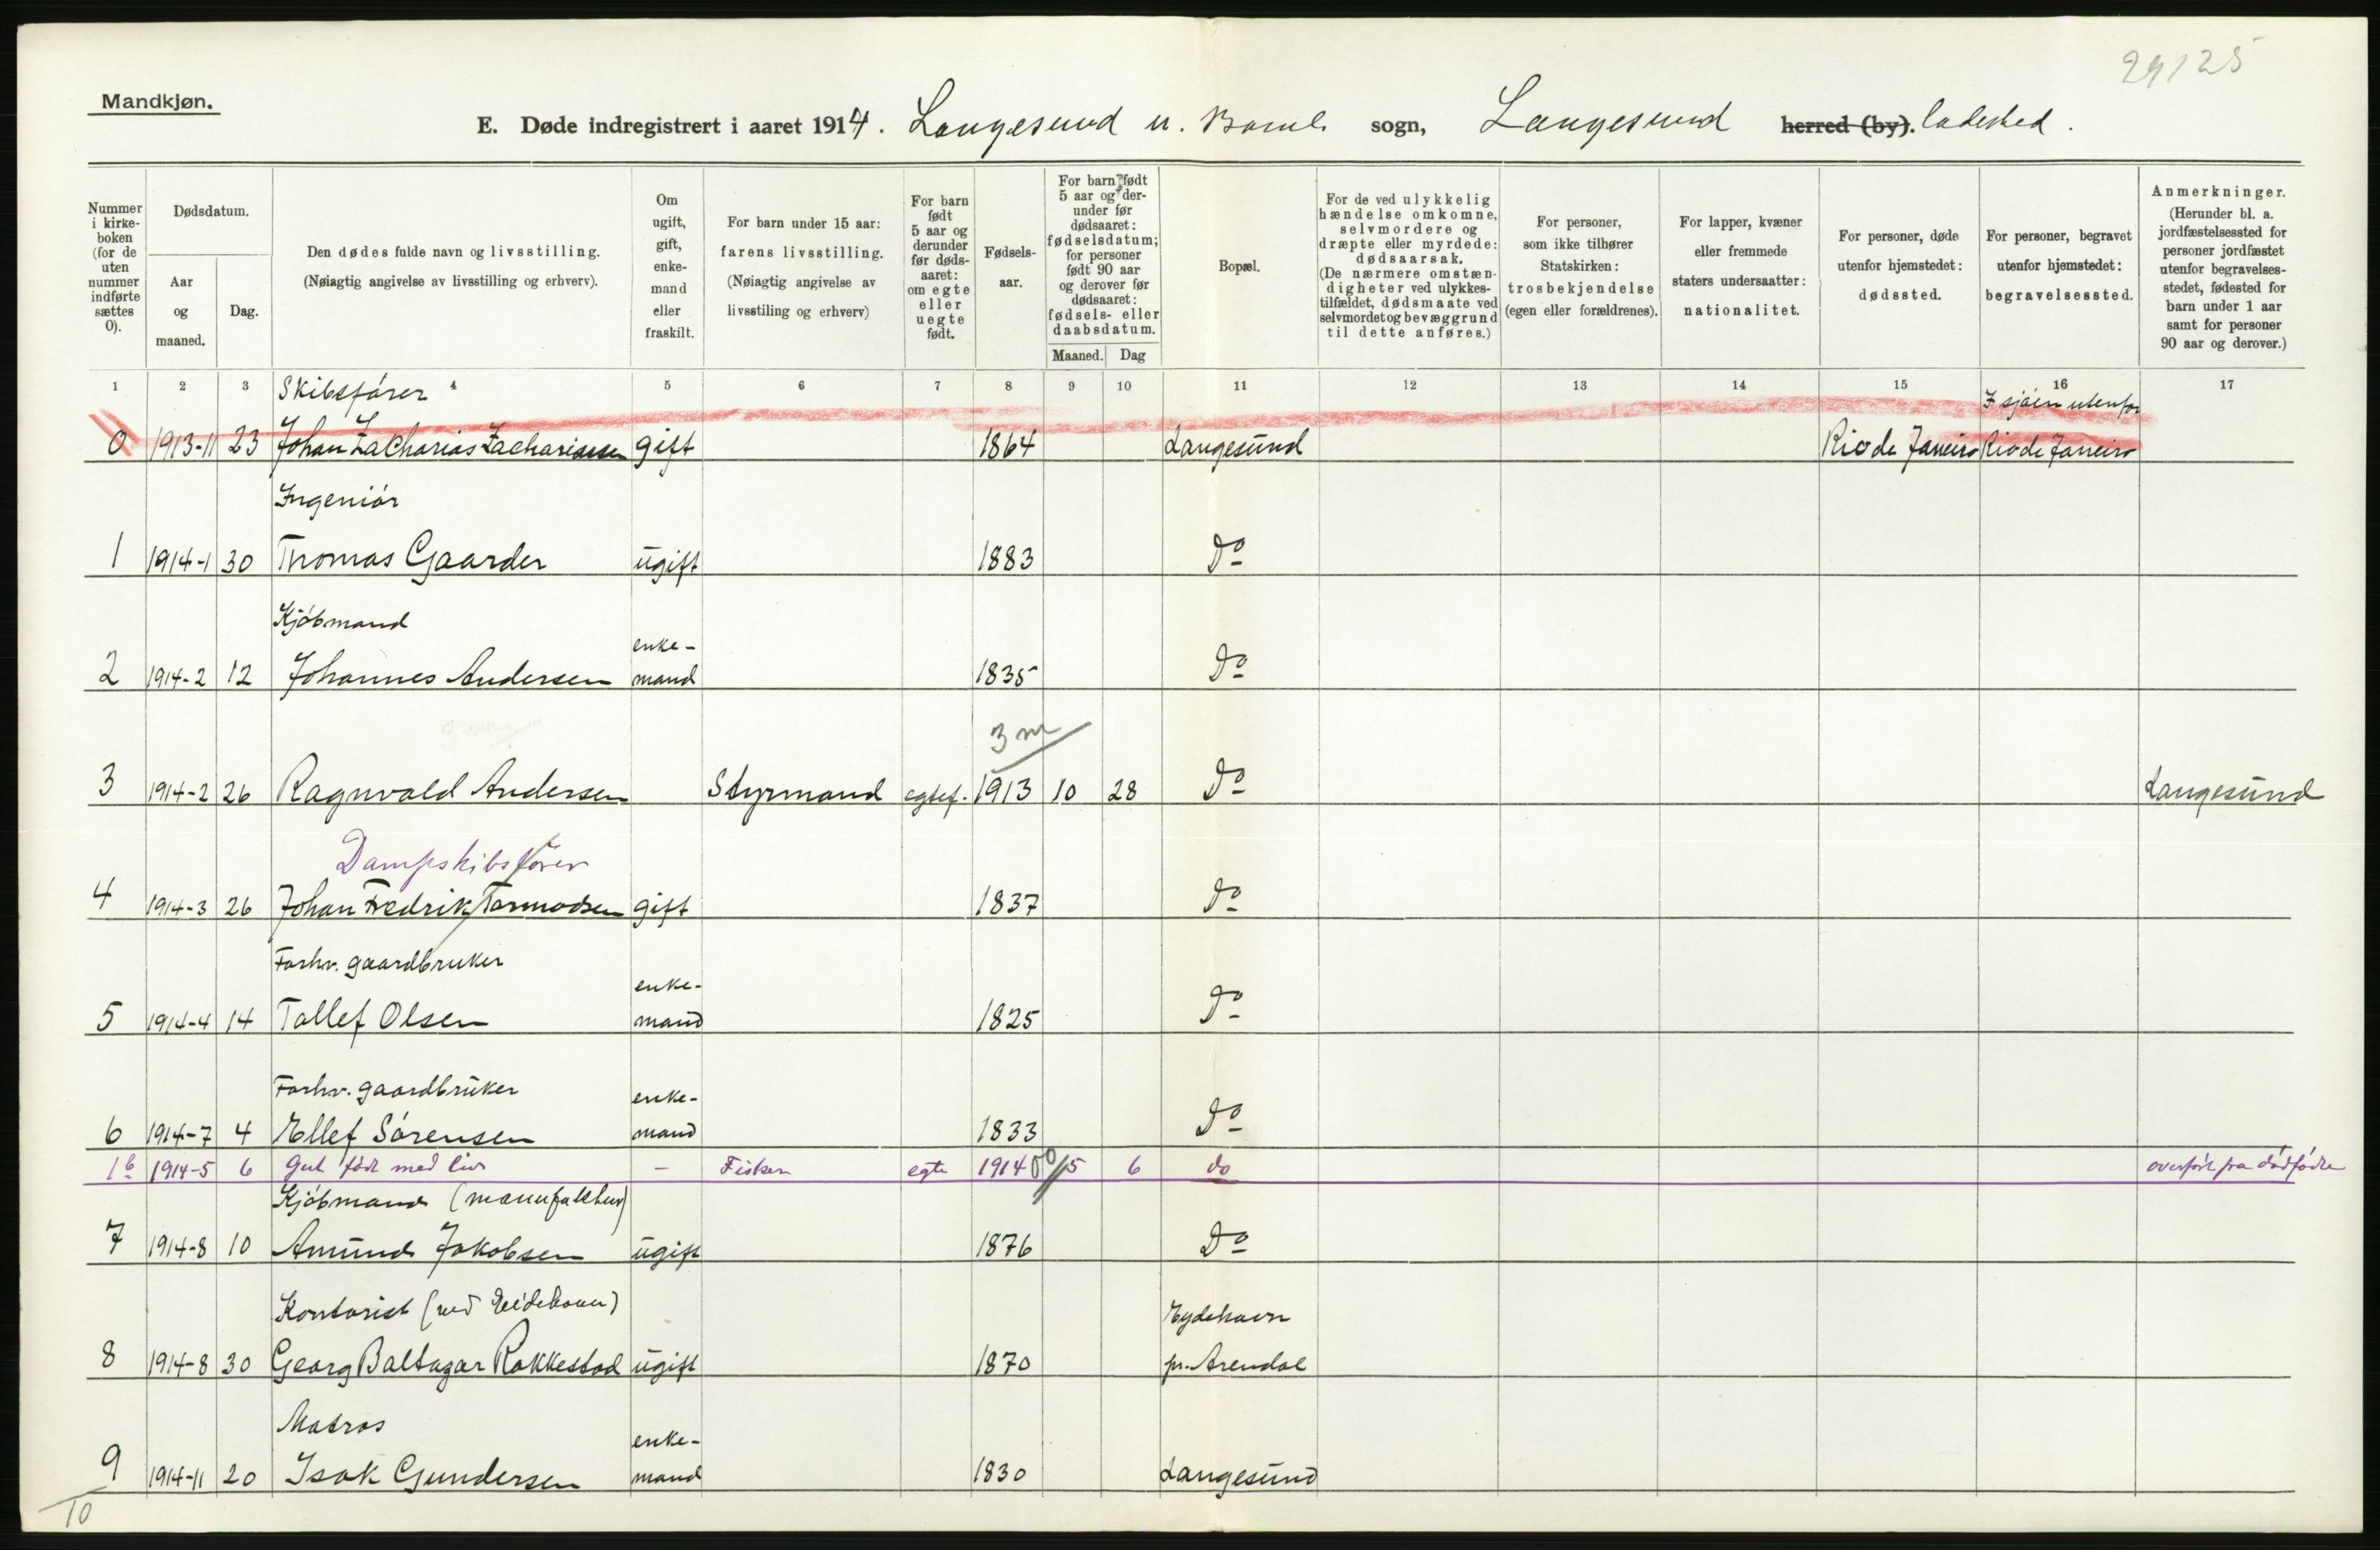 29125
Mandkjøn.
E. Døde indregistrert i aaret 1914. Langesund u. Bamle sogn, Langesund herred (by). ladested.
Nummer i kirke-boken (for de uten nummer indførte sættes 0).
Dødsdatum.
Aar og maaned.
Dag.
Den dødes fulde navn og livsstilling. (Nøiagtig angivelse av livsstilling og erhverv).
Om ugift, gift, enke-mand eller fraskilt.
For barn under 15 aar: farens livsstilling. (Nøiagtig angivelse av livsstiling og erhverv)
For barn født 5 aar og derunder før døds-aaret: om egte eller uegte født.
Fødsels-aar.
For barn født 5 aar og der-under før dødsaaret: fødselsdatum; for personer født 90 aar og derover før dødsaaret: fødsels- eller daabsdatum.
Maaned. Dag
Bopæl.
For de ved ulykkelig hændelse omkomne, selvmordere og dræpte eller myrdede: dødsaarsak. (De nærmere omstæn-digheter ved ulykkes-tilfældet, dødsmaate ved selvmordet og bevæggrund til dette anføres.)
For personer, som ikke tilhører Statskirken: trosbekjendelse (egen eller forældrenes).
For lapper, kvæner eller fremmede staters undersaatter: nationalitet.
For personer, døde utenfor hjemstedet: dødssted.
For personer, begravet utenfor hjemstedet: begravelsessted.
Anmerkninger. (Herunder bl. a. jordfæstelsessted for personer jordfæstet utenfor begravelses-stedet, fødested for barn under 1 aar samt for personer 90 aar og derover.)
1 2 3 4 5 6 7 8 9 10 11 12 13 14 15 16 17
Skibsfører I sjøen utenfor
0 1913-11 23 Johan Zacharias Zachariasen gift 1864 Langesund Rio de Janeiro Rio de Janeiro
Ingeniør
1 1914-1 30 Thomas Gaarder ugift 1883 Do
Kjøbmand enke-
2 1914-2 12 Johannes Andersen mand 1835 Do
3 m
3 1914-2 26 Ragnvald Andersen Styrmand egtef. 1913 10 28 Do Langesund
Dampskibsfører
4 1914-3 26 Johan Fredrik Tormodsen gift 1837 Do
Forhv. gaardbruker enke-
5 1914-4 14 Tollef Olsen mand 1825 Do
Forhv. gaardbruker enke-
6 1914-7 4 Ellef Sørensen mand 1833 Do
1b 1914-5 6 Gut født med liv - Fisker egte 1914 0/0 5 6 do overført fra dødfødte
Kjøbmand (manufaktur)
7 1914-8 10 Amund Jakobsen ugift 1876 Do
Kontorist (ved Eidehavn) Eydehavn
8 1914-8 30 Georg Baltazar Rakkestad ugift 1870 pr. Arendal
Matros enke-
9 1914-11 20 Isak Gundersen mand 1830 Langesund
10